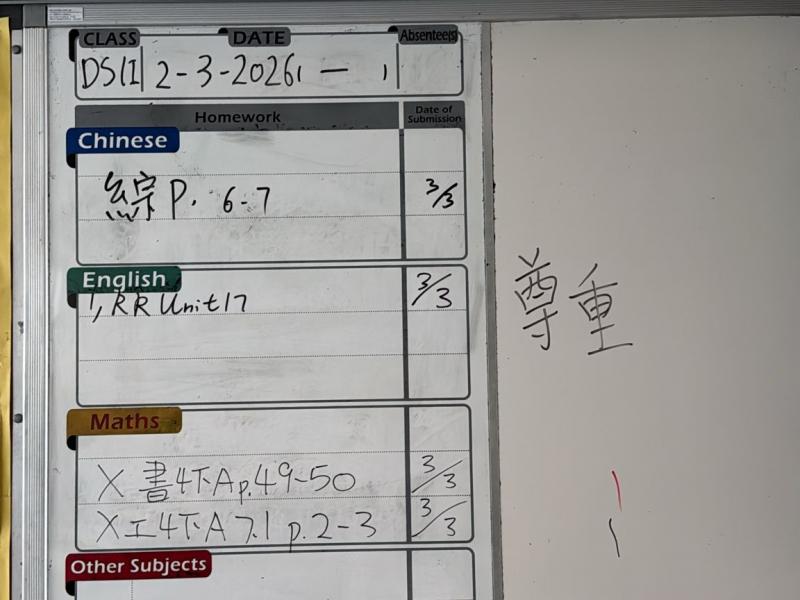 CLASS DATE Absentee(s)
2-3-2026
Homework Date of Submission
Chinese
綜 P. 6-7 3/3
English
1, RR Unit 17 3/3
Maths
X 書4下A p.49-50 3/3
X 工4下A 7.1 p.2-3 3/3
Other Subjects
尊重